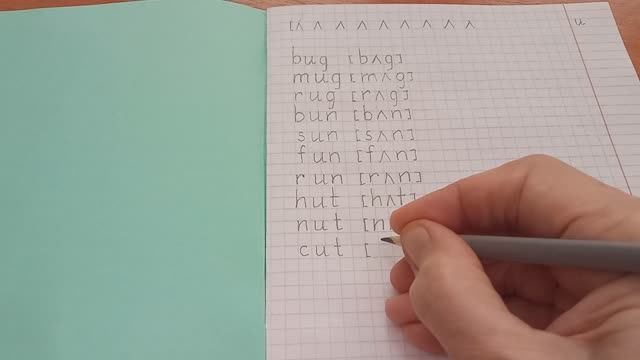 [ʌ ʌ ʌ ʌ ʌ ʌ ʌ ʌ ʌ u
bug [bʌg]
mug [mʌg]
rug [rʌg]
bun [bʌn]
sun [sʌn]
fun [fʌn]
run [rʌn]
hut [hʌt]
nut [n
cut [